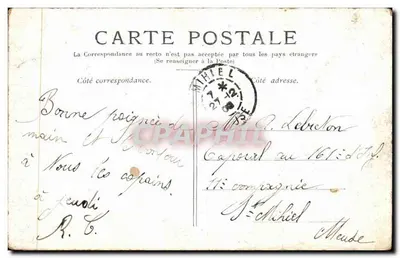 CARTE POSTALE
La Correspondance au recto n'est pas acceptée par tous les pays étrangers
(Se renseigner à la Poste)
Côté correspondance.
Côté adresse.
MIHIEL
7 *
27-12
MEUSE
Bonne poignée de
main et
à Tous les copains.
à jeudi
R. C.
Lebreton
Caporal au 161e d'Inf.
11e compagnie
St Mihiel
Meuse